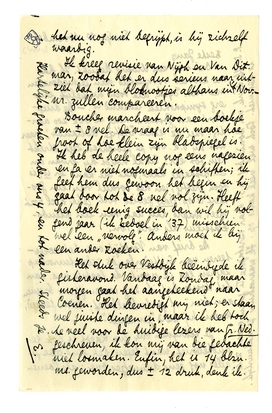 het nu nog niet begrijpt, is hij zichzelf
waardig.
Ik kreeg revisie van Nijgh en Van Dit-
mar, zoodat het er dus serieus naar uit-
ziet dat mijn bloknootjes althans in Nov.
nr. zullen compareeren.
Bouche marcheert voor een boekje
van ± 8 vel. De vraag is nu maar hoe
groot of hoe klein zijn bladspiegel is.
Ik heb de heele copy nog eens nagezien
en ga er niet nogmaals in schiften; ik
geef hem dus gewoon het begin en hij
gaat door tot de 8 vel vol zijn. Heeft
het boek eenig succes, dan wil hij vol-
gend jaar (ik bedoel in '37) misschien
wel een „vervolg". Anders moet ik hij
een ander zoeken.
Het stuk over Vestdijk beëindigde ik
gisteravond. Vandaag is Zondag, maar
morgen gaat het aangeteekend naar
Coenen. Het bevredigt mij niet; er staan
wel juiste dingen in, maar ik heb toch
te veel voor de huidige lezers van Gr. Ned.
geschreven, ik kon mij van die gedachte
niet losmaken. Enfin, het is 14 blzn.
ms. geworden, dus ± 12 druk, denk ik.
Hartelijke groeten onder ons 4, en tot nader steeds je
E.